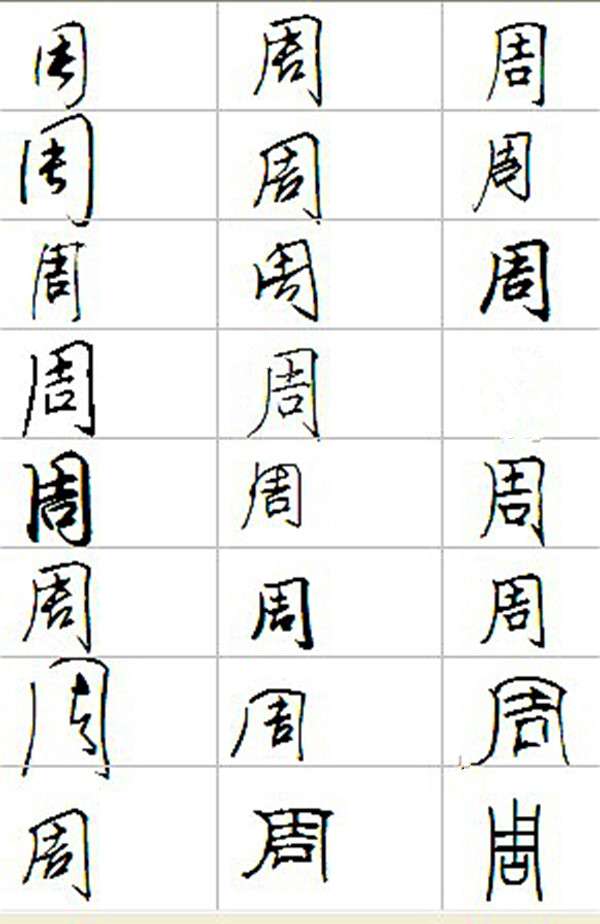 周 周 周
周 周 周
周 周 周
周 周
周 周 周
周 周 周
周 周 周
周 周 周